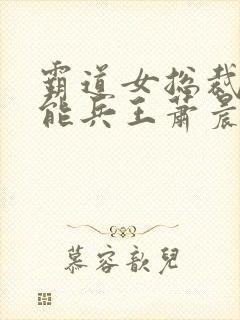 霸道女总裁
能兵王萧晨
慕容歆兒